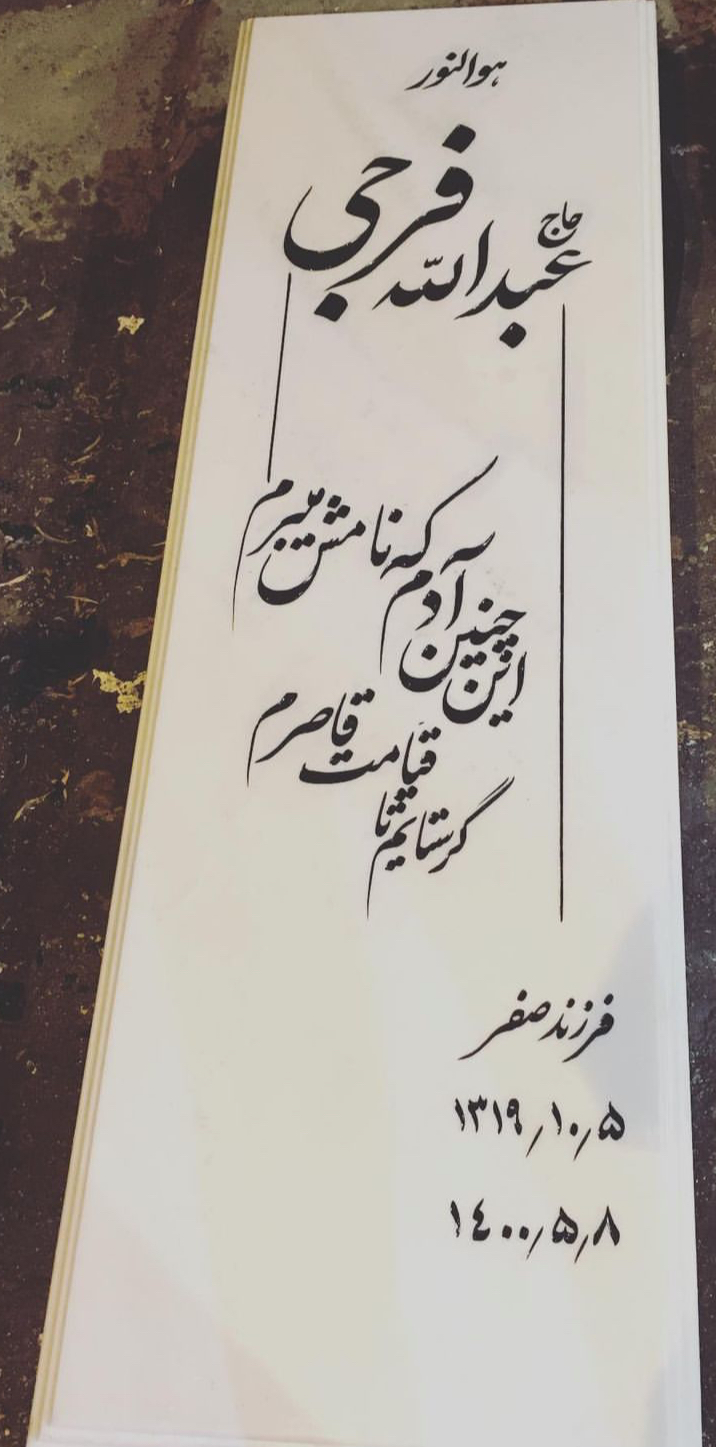 هوالنور
حاج
عبدالله فرجی
این چنین آدم که نامش میبرم
گر ستایم تا قیامت قاصرم
فرزند صفر
۱۳۱۹٫۱۰٫۵
۱٤۰۰٫۵٫۸